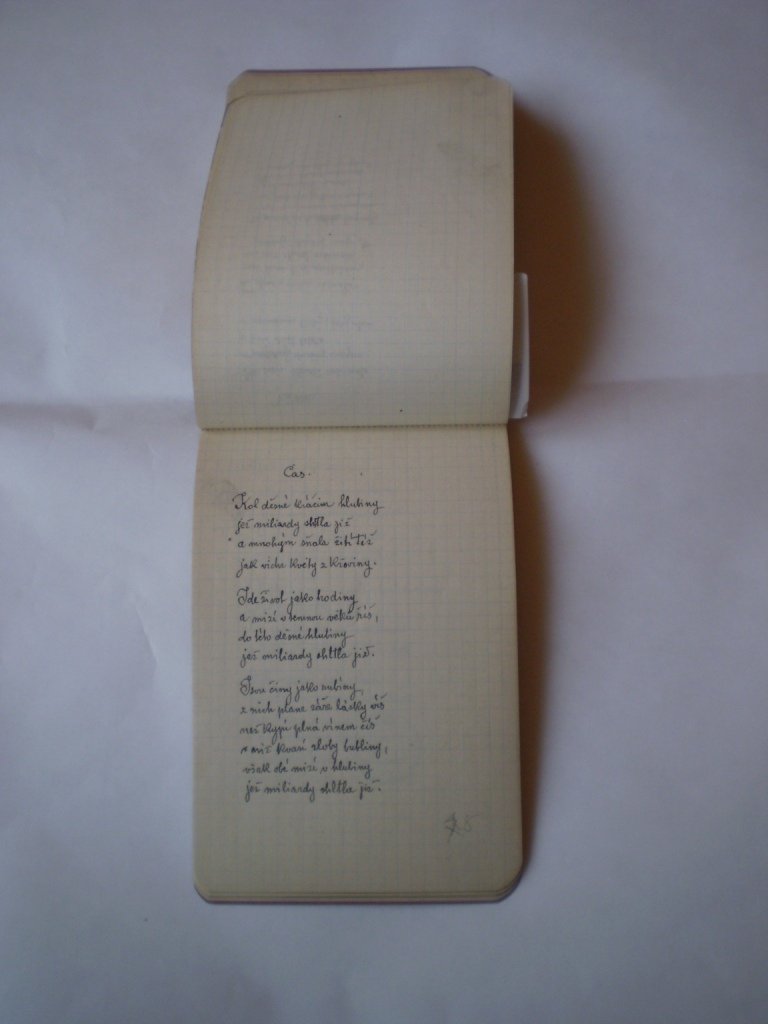 Čas.
Kol děsné kráčím hlubiny
jež miliardy shltla již
a mnohým sňala žití tíž
jak vichr květy z křoviny.
Jde život jako hodiny
a mizí v temnou věků říš,
do této děsné hlubiny
jež miliardy shltla již.
Jsou činy jako rubíny
z nich plane záře lásky
neš kypí plná vínem číš
v níž kvasí zloby bubliny,
však obé mizí v hlubiny
jež miliardy shltla již.
5